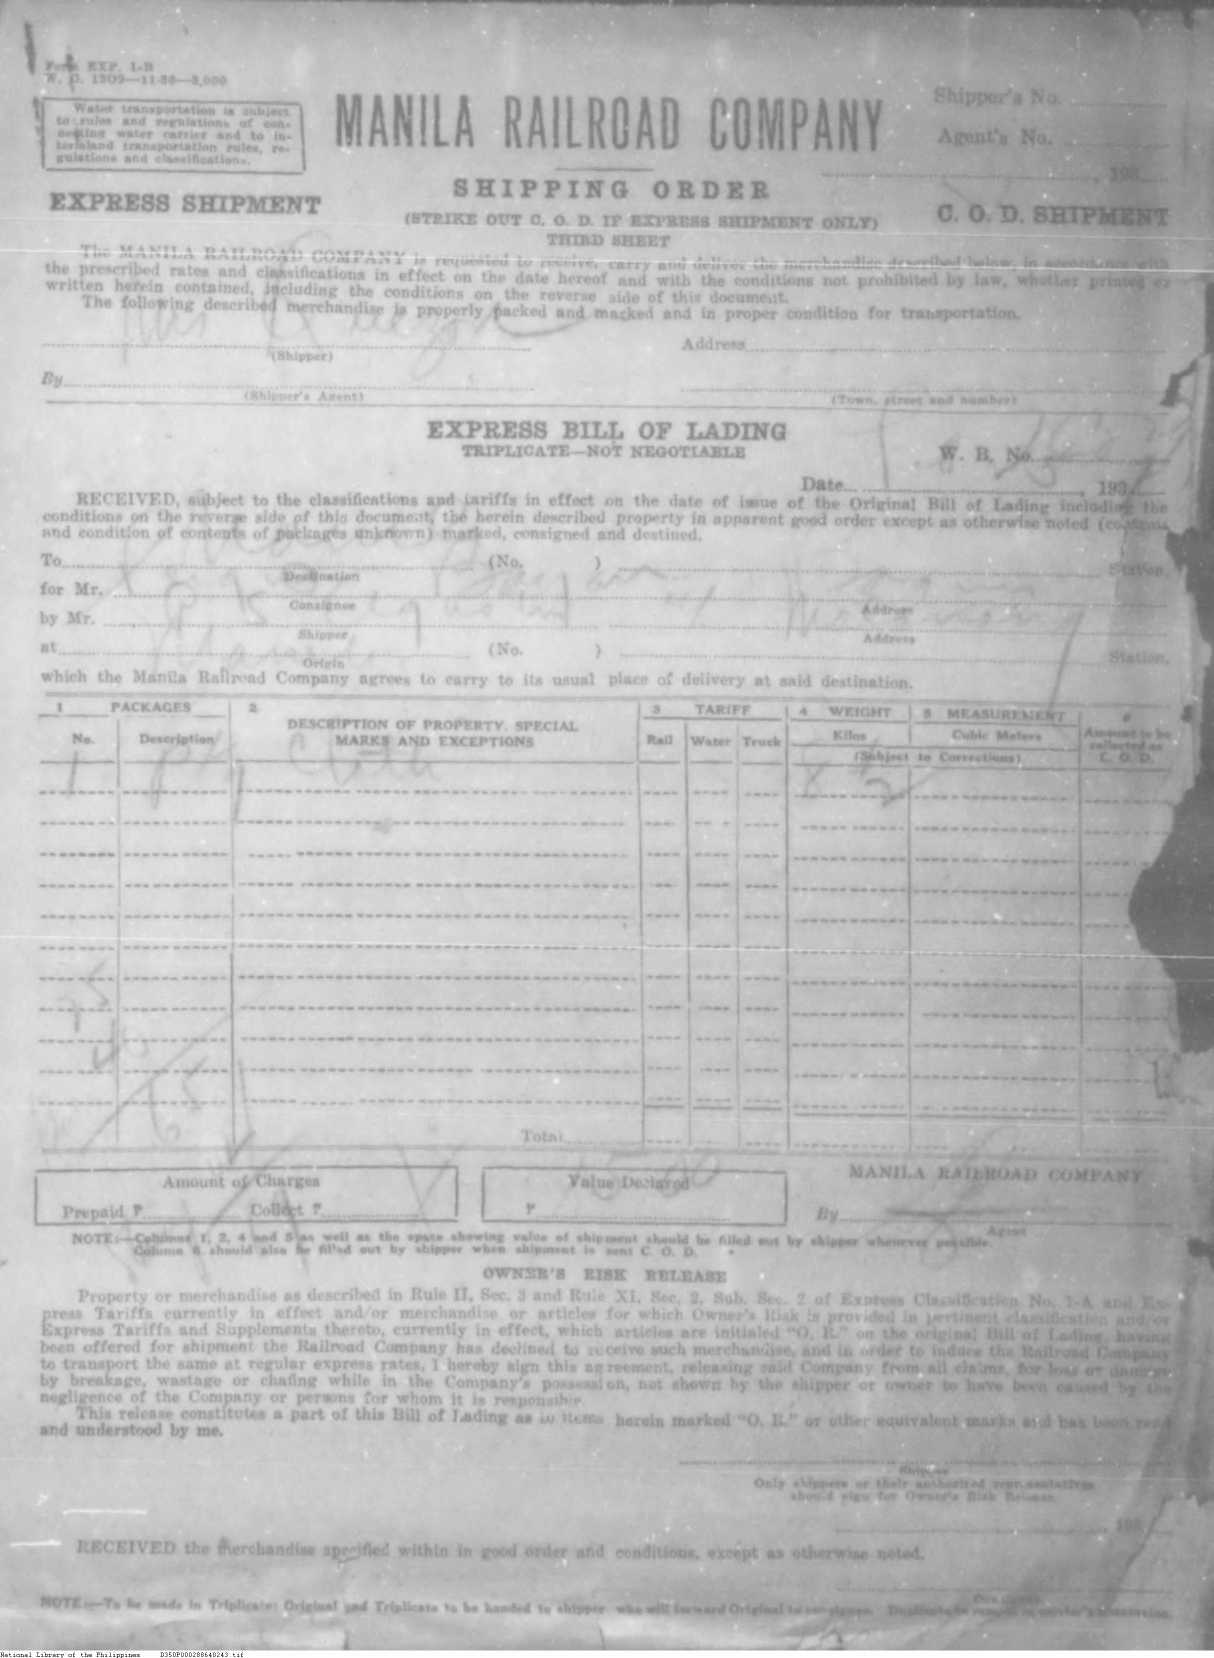 Form EXP. 1-B
W. O. 1309—11-36—3,000
Water transportation is subject
to rules and regulations of con-
necting water carrier and to in-
terisland transportation rules, re-
gulations and classifications.
MANILA RAILROAD COMPANY
Shipper's No.
Agent's No.
193
EXPRESS SHIPMENT
SHIPPING ORDER
(STRIKE OUT C. O. D. IF EXPRESS SHIPMENT ONLY)
C. O. D. SHIPMENT
THIRD SHEET
The MANILA RAILROAD COMPANY is requested to receive, carry and deliver the merchandise described below, in accordance with
the prescribed rates and classifications in effect on the date hereof and with the conditions not prohibited by law, whether printed or
written herein contained, including the conditions on the reverse side of this document.
The following described merchandise is properly packed and macked and in proper condition for transportation.
Address
(Shipper)
By
(Shipper's Agent)
(Town, street and number)
EXPRESS BILL OF LADING
TRIPLICATE—NOT NEGOTIABLE
W. B. No.
Date , 193
RECEIVED, subject to the classifications and tariffs in effect on the date of issue of the Original Bill of Lading including the
conditions on the reverse side of this document, the herein described property in apparent good order except as otherwise noted (contents
and condition of contents of packages unknown) marked, consigned and destined.
To (No. ) Station,
Destination
for Mr.
Consignee Address
by Mr.
Shipper Address
at (No. ) Station,
Origin
which the Manila Railroad Company agrees to carry to its usual place of delivery at said destination.
1 PACKAGES 2 3 TARIFF 4 WEIGHT 5 MEASUREMENT 6
No. Description DESCRIPTION OF PROPERTY, SPECIAL
MARKS AND EXCEPTIONS Rail Water Truck Kilos Cubic Meters Amount to be
collected as
C. O. D.
(Subject to Corrections)
1
75
65
Total
Amount of Charges
Prepaid ₱ Collect ₱
Value Declared
₱
MANILA RAILROAD COMPANY
By
Agent
NOTE:—Columns 1, 2, 4 and 5 as well as the space showing value of shipment should be filled out by shipper whenever possible.
Column 6 should also be filled out by shipper when shipment is sent C. O. D.
OWNER'S RISK RELEASE
Property or merchandise as described in Rule II, Sec. 3 and Rule XI, Sec. 2, Sub. Sec. 2 of Express Classification No. 1-A and Ex-
press Tariffs currently in effect and/or merchandise or articles for which Owner's Risk is provided in pertinent classification and/or
Express Tariffs and Supplements thereto, currently in effect, which articles are initialed "O. R." on the original Bill of Lading, having
been offered for shipment the Railroad Company has declined to receive such merchandise, and in order to induce the Railroad Company
to transport the same at regular express rates, I hereby sign this agreement, releasing said Company from all claims, for loss or damage
by breakage, wastage or chafing while in the Company's possession, not shown by the shipper or owner to have been caused by the
negligence of the Company or persons for whom it is responsible.
This release constitutes a part of this Bill of Lading as to items herein marked "O. R." or other equivalent marks and has been read
and understood by me.
Shipper
Only shippers or their authorized representatives
should sign for Owner's Risk Release.
193
RECEIVED the merchandise specified within in good order and conditions, except as otherwise noted.
Consignee
NOTE:—To be made in Triplicate: Original and Triplicate to be handed to shipper who will forward Original to consignee. Duplicate to remain in
National Library of the Philippines D350P000288640243.tif